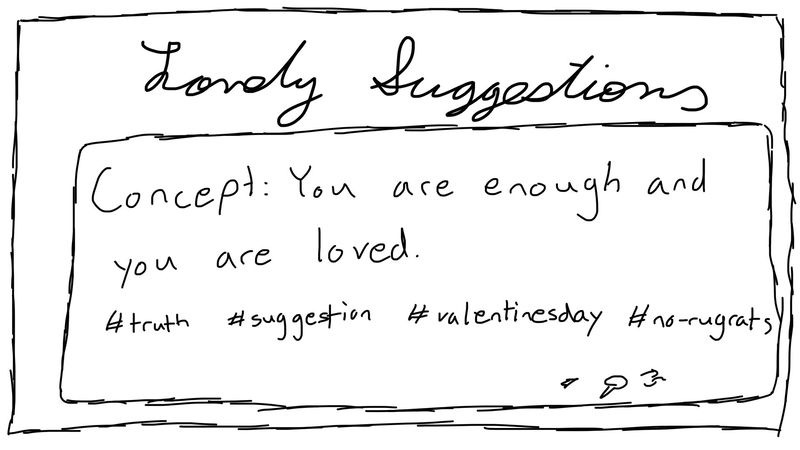 Lovely Suggestions
Concept: You are enough and
you are loved.
#truth #suggestion #valentinesday #no-rugrats